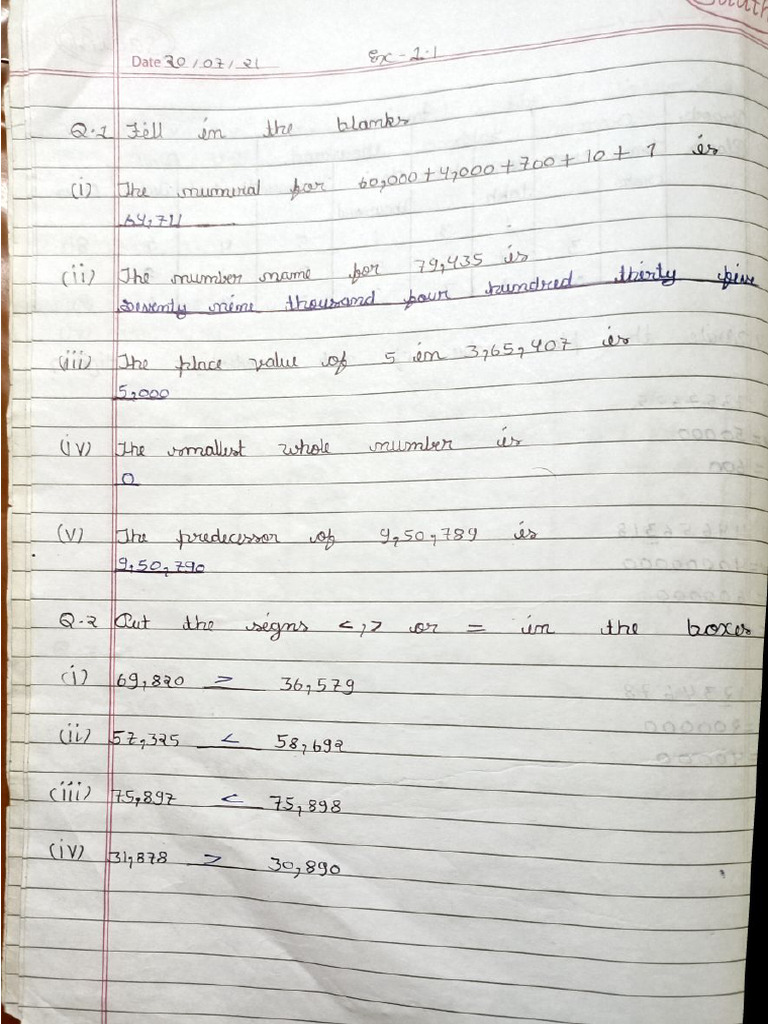 Date 20/07/21 Ex-1.1
Q.1 Fill in the blanks
(i) The numeral for 60,000+4,000+700+10+1 is
64,711
(ii) The number name for 79,435 is
Seventy nine thousand four hundred thirty five
(iii) The place value of 5 in 3,65,407 is
5,000
(iv) The smallest whole number is
0
(v) The predecessor of 9,50,789 is
9,50,790
Q.2 Put the signs <,> or = in the boxes
(i) 69,820 > 36,579
(ii) 57,325 < 58,692
(iii) 75,897 < 75,898
(iv) 31,878 > 30,890